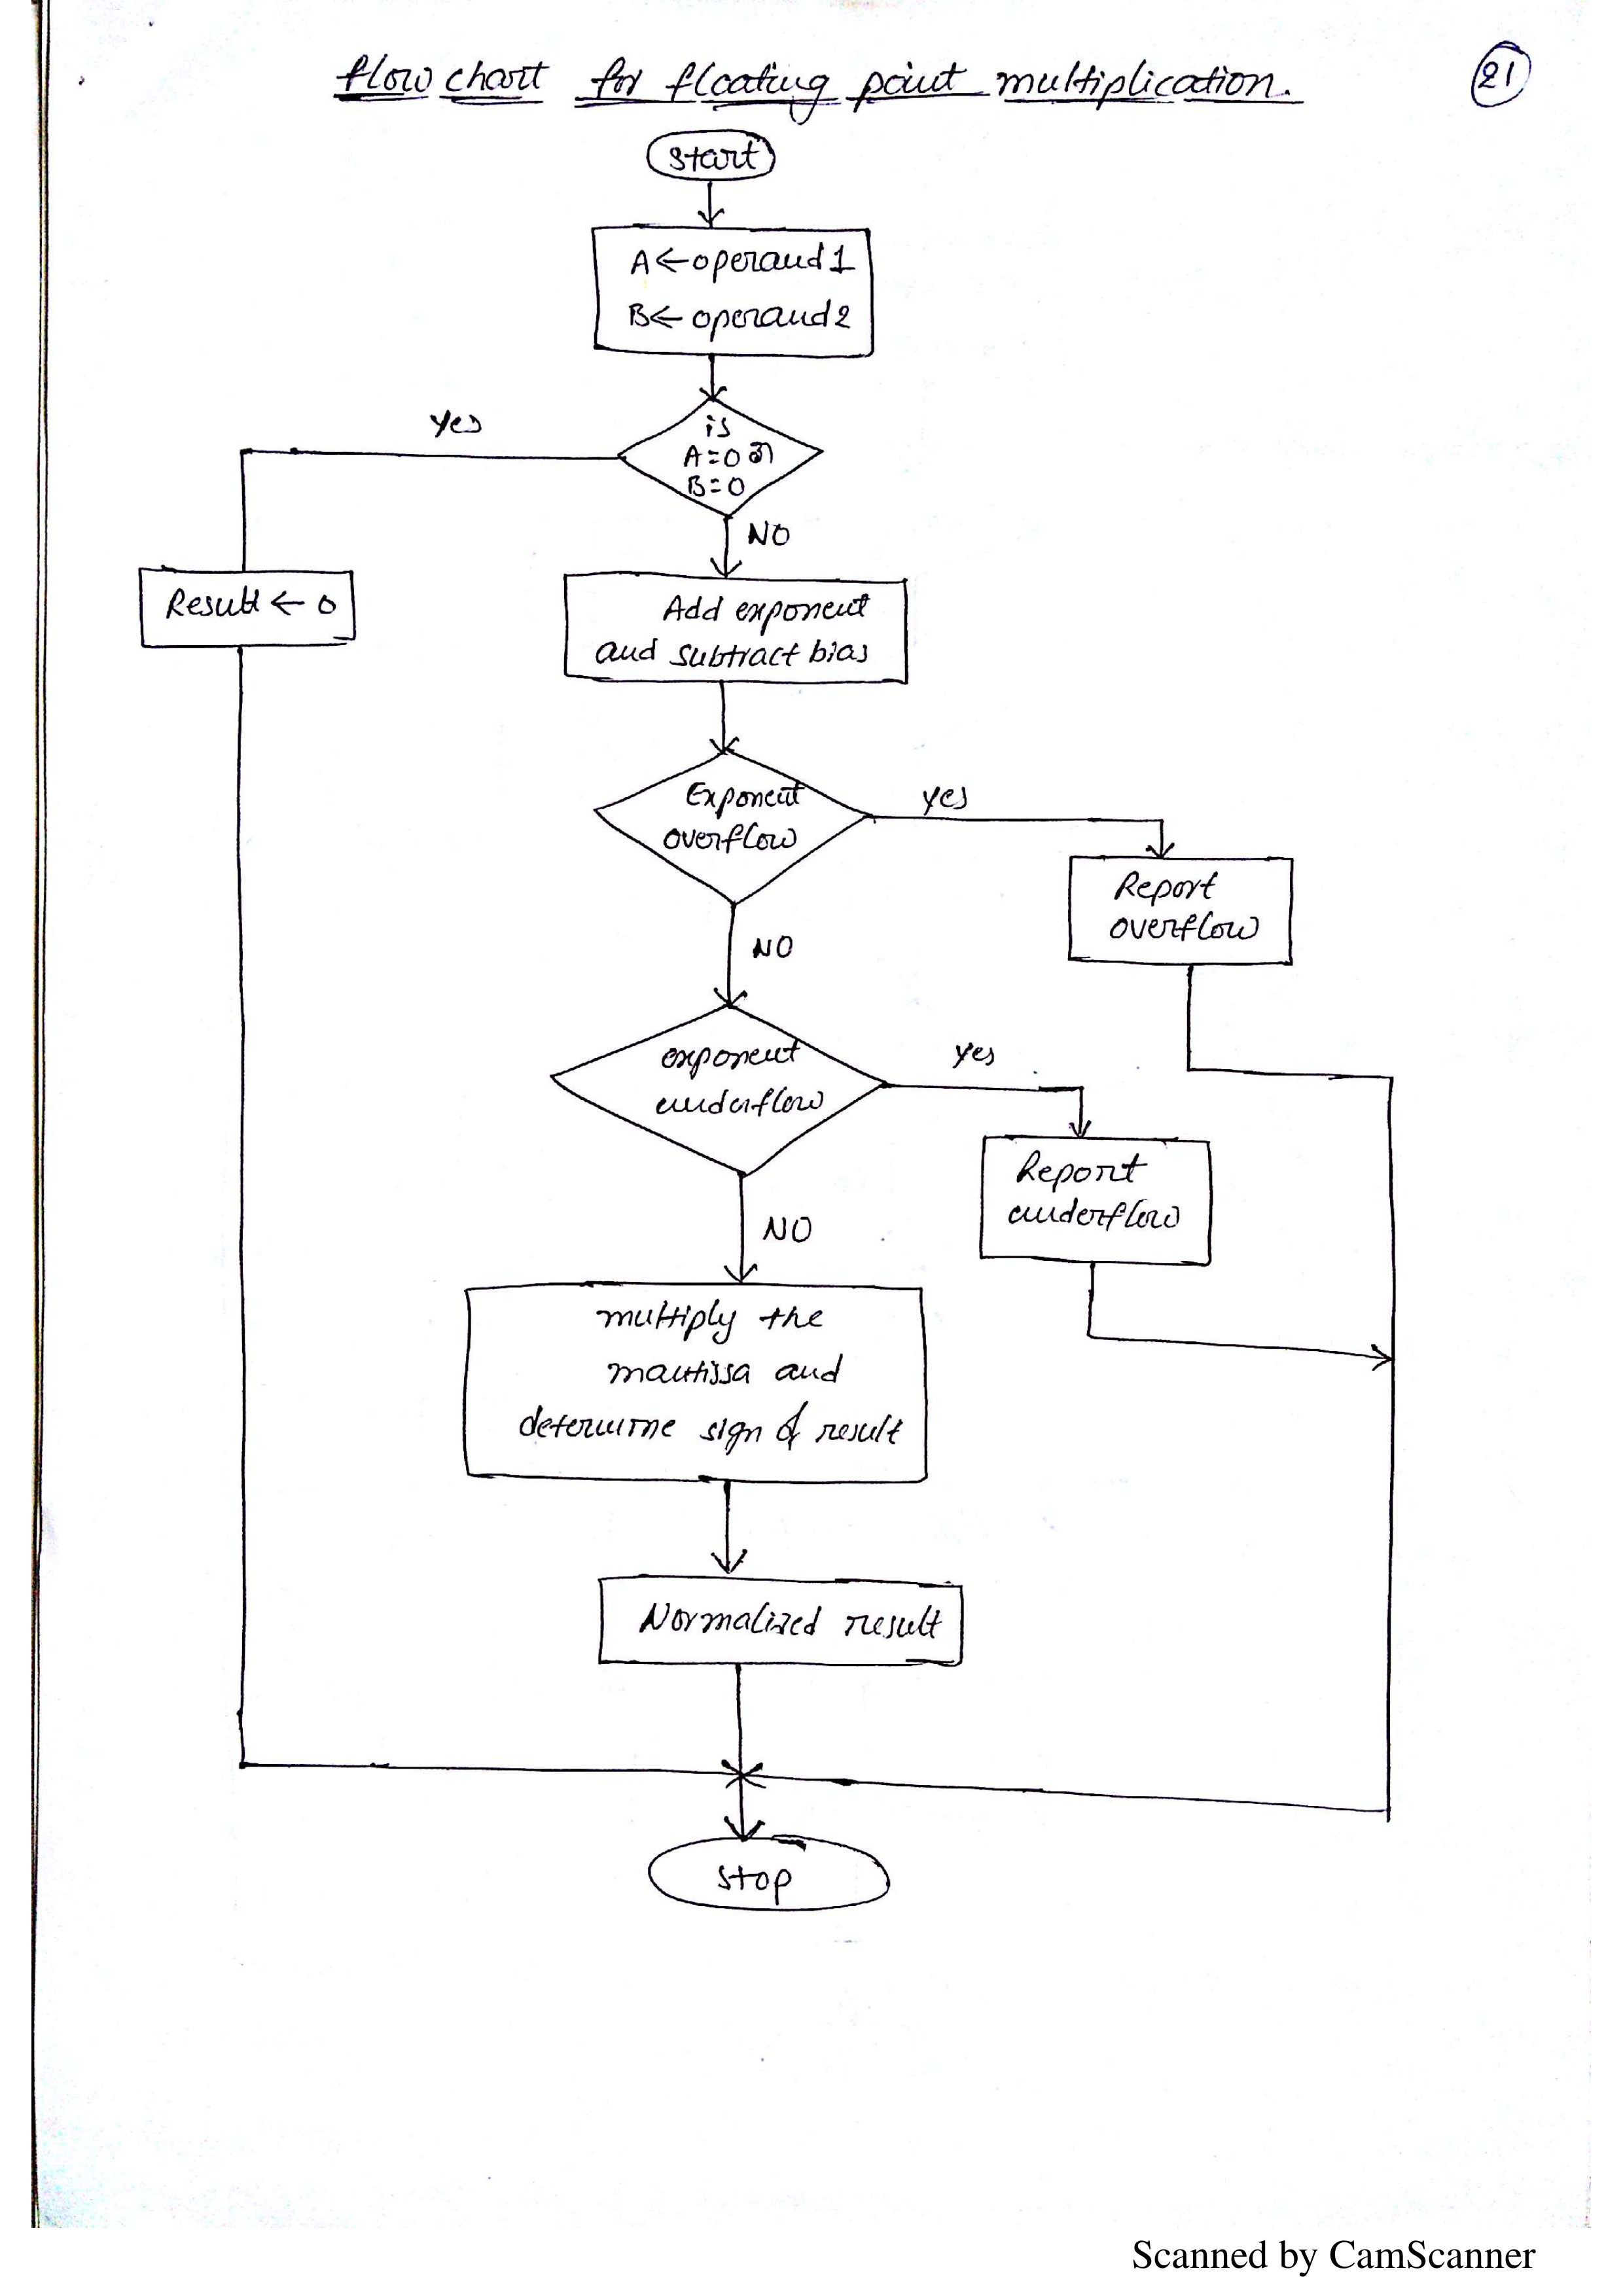 flow chart for floating point multiplication.
21
start
A←operand1
B←operand2
is
A=0 or
B=0
yes
NO
Result ← 0
Add exponent
and subtract bias
Exponent
overflow
yes
Report
overflow
NO
exponent
underflow
yes
Report
underflow
NO
multiply the
mantissa and
determine sign of result
Normalized result
stop
Scanned by CamScanner